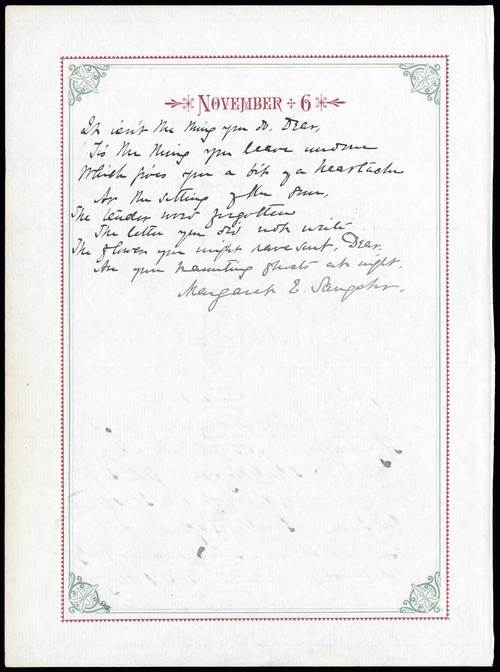 NOVEMBER + 6
It isn't the thing you do, Dear,
'Tis the thing you leave undone
Which gives you a bit of a heartache
At the setting of the Sun,
The tender word forgotten
The letter you did not write
The flower you might have sent, Dear,
Are your haunting ghosts at night.
Margaret E. Sangster.